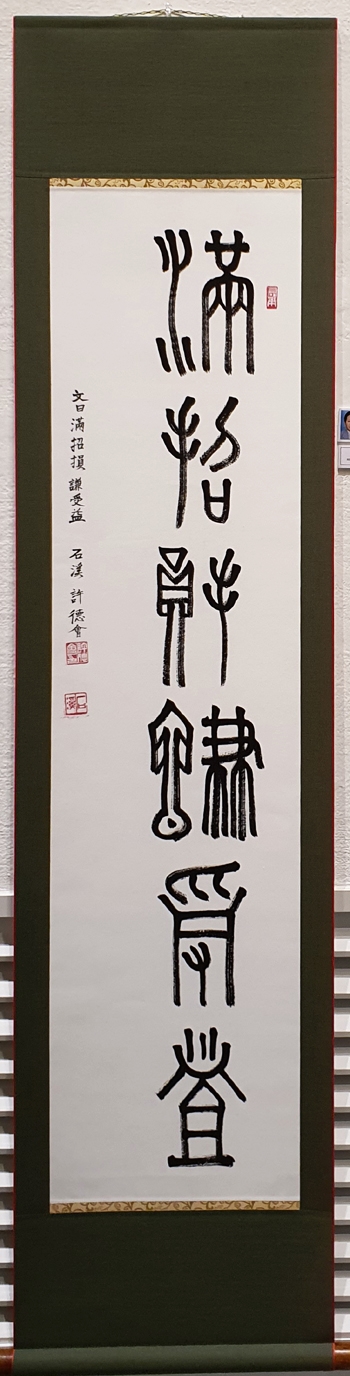 滿招損謙受益
文曰 滿招損 謙受益 石溪 許德會